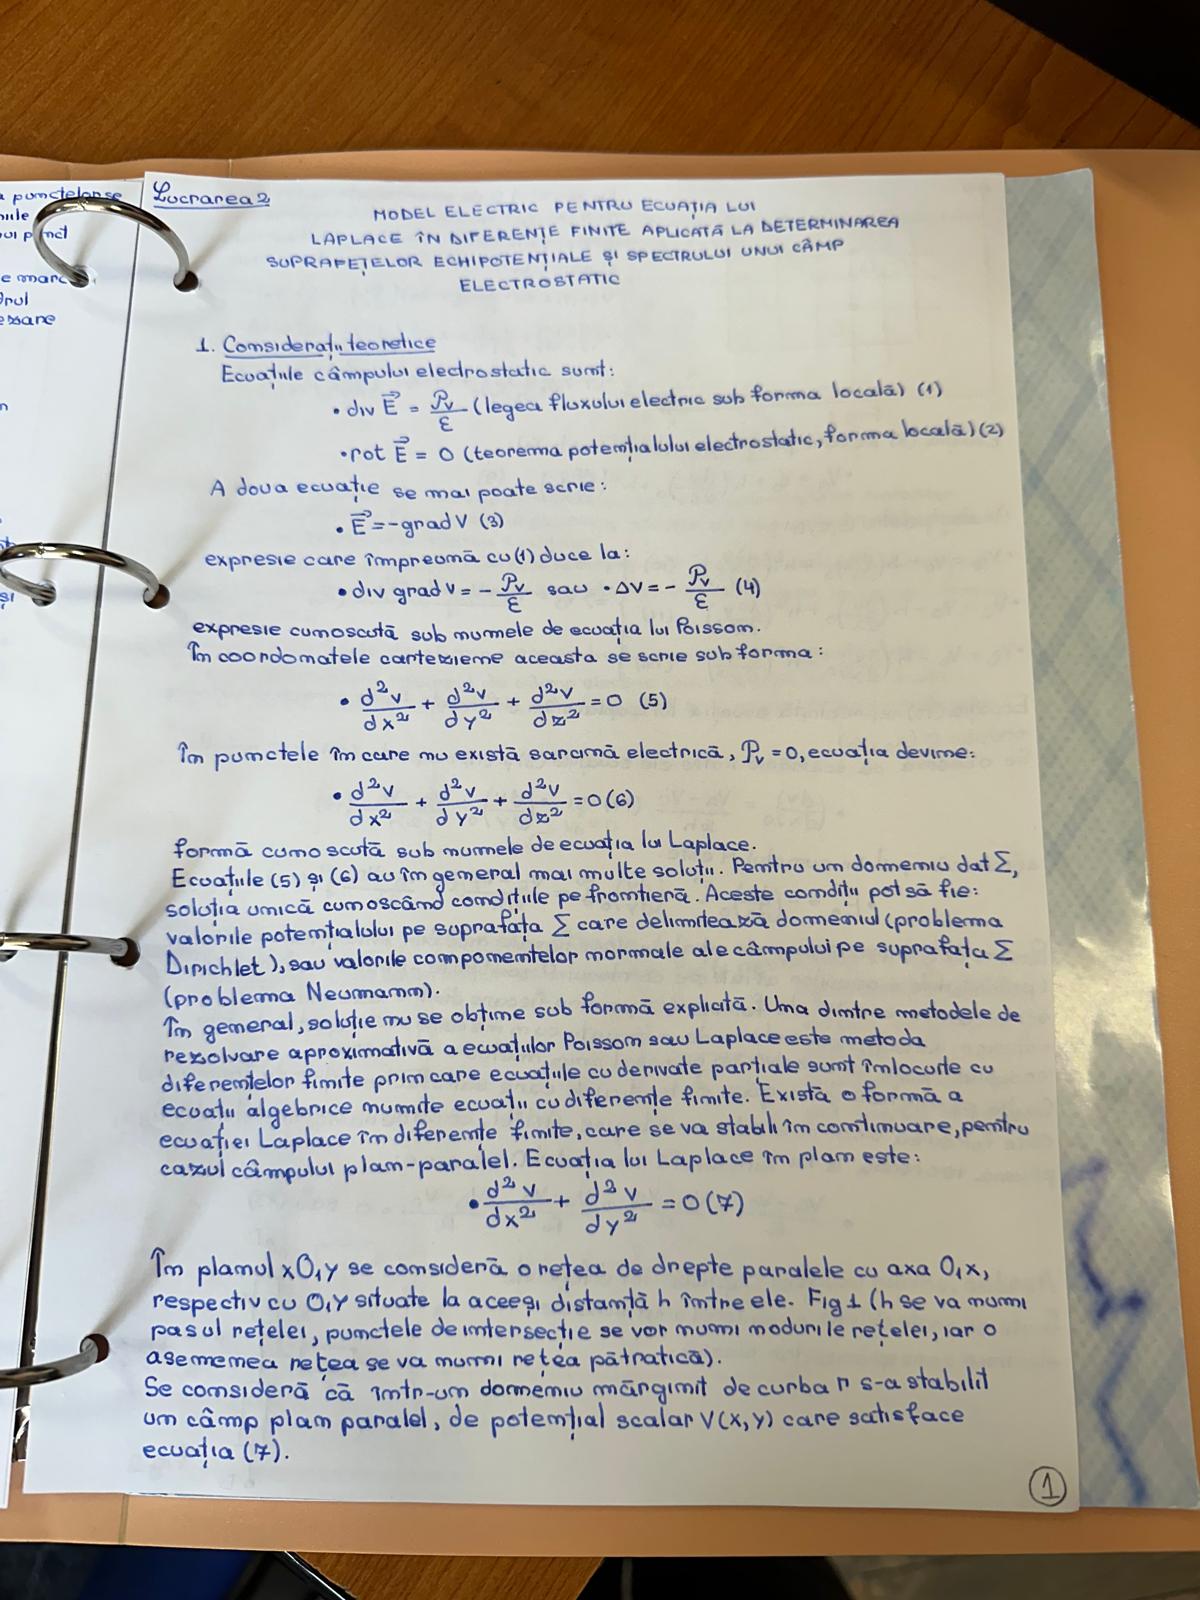 a punctelor se
Lucrarea 2
MODEL ELECTRIC PENTRU ECUAȚIA LUI
LAPLACE ÎN DIFERENȚE FINITE APLICATĂ LA DETERMINAREA
SUPRAFEȚELOR ECHIPOTENȚIALE ȘI SPECTRULUI UNUI CÂMP
ELECTROSTATIC
1. Considerații teoretice
Ecuațiile câmpului electrostatic sunt:
• div E⃗ = ρv/ε (legea fluxului electric sub forma locală) (1)
• rot E⃗ = 0 (teorema potențialului electrostatic, forma locală) (2)
A doua ecuație se mai poate scrie:
• E⃗ = -grad V (3)
expresie care împreună cu (1) duce la:
• div grad V = - ρv/ε sau • ΔV = - ρv/ε (4)
expresie cunoscută sub numele de ecuația lui Poisson.
În coordonatele carteziene aceasta se scrie sub forma:
• d²v/dx² + d²v/dy² + d²v/dz² = 0 (5)
În punctele în care nu există sarcină electrică, ρv = 0, ecuația devine:
• d²v/dx² + d²v/dy² + d²v/dz² = 0 (6)
formă cunoscută sub numele de ecuația lui Laplace.
Ecuațiile (5) și (6) au în general mai multe soluții. Pentru un domeniu dat Σ,
soluția unică cunoscând condițiile pe frontieră. Aceste condiții pot să fie:
valorile potențialului pe suprafața Σ care delimitează domeniul (problema
Dirichlet), sau valorile componentelor normale ale câmpului pe suprafața Σ
(problema Neumann).
În general, soluție nu se obține sub formă explicită. Una dintre metodele de
rezolvare aproximativă a ecuațiilor Poisson sau Laplace este metoda
diferențelor finite prin care ecuațiile cu derivate parțiale sunt înlocuite cu
ecuații algebrice numite ecuații cu diferențe finite. Există o formă a
ecuației Laplace în diferențe finite, care se va stabili în continuare, pentru
cazul câmpului plan-paralel. Ecuația lui Laplace în plan este:
• d²v/dx² + d²v/dy² = 0 (7)
În planul xO,y se consideră o rețea de drepte paralele cu axa O,x,
respectiv cu O,y situate la aceeși distanță h între ele. Fig 1 (h se va numi
pasul rețelei, punctele de intersecție se vor numi nodurile rețelei, iar o
asemenea rețea se va numi rețea pătratică).
Se consideră că într-un domeniu mărginit de curba Γ s-a stabilit
un câmp plan paralel, de potențial scalar V(x,y) care satisface
ecuația (7).
1